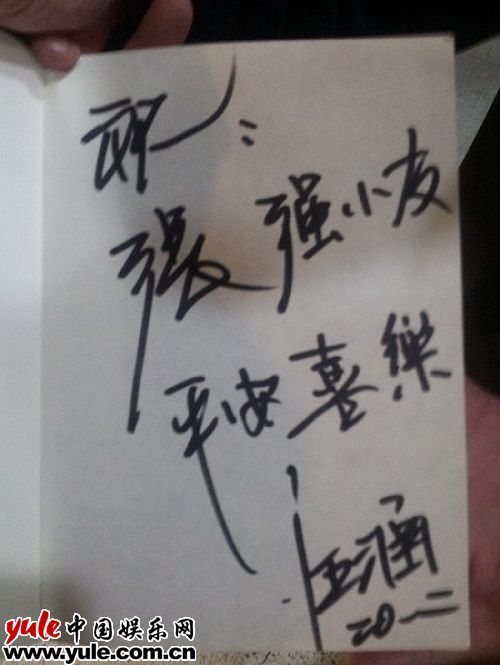 祝：
張强小友
平安喜樂
汪涵
二〇一二
yule中国娱乐网
www.yule.com.cn